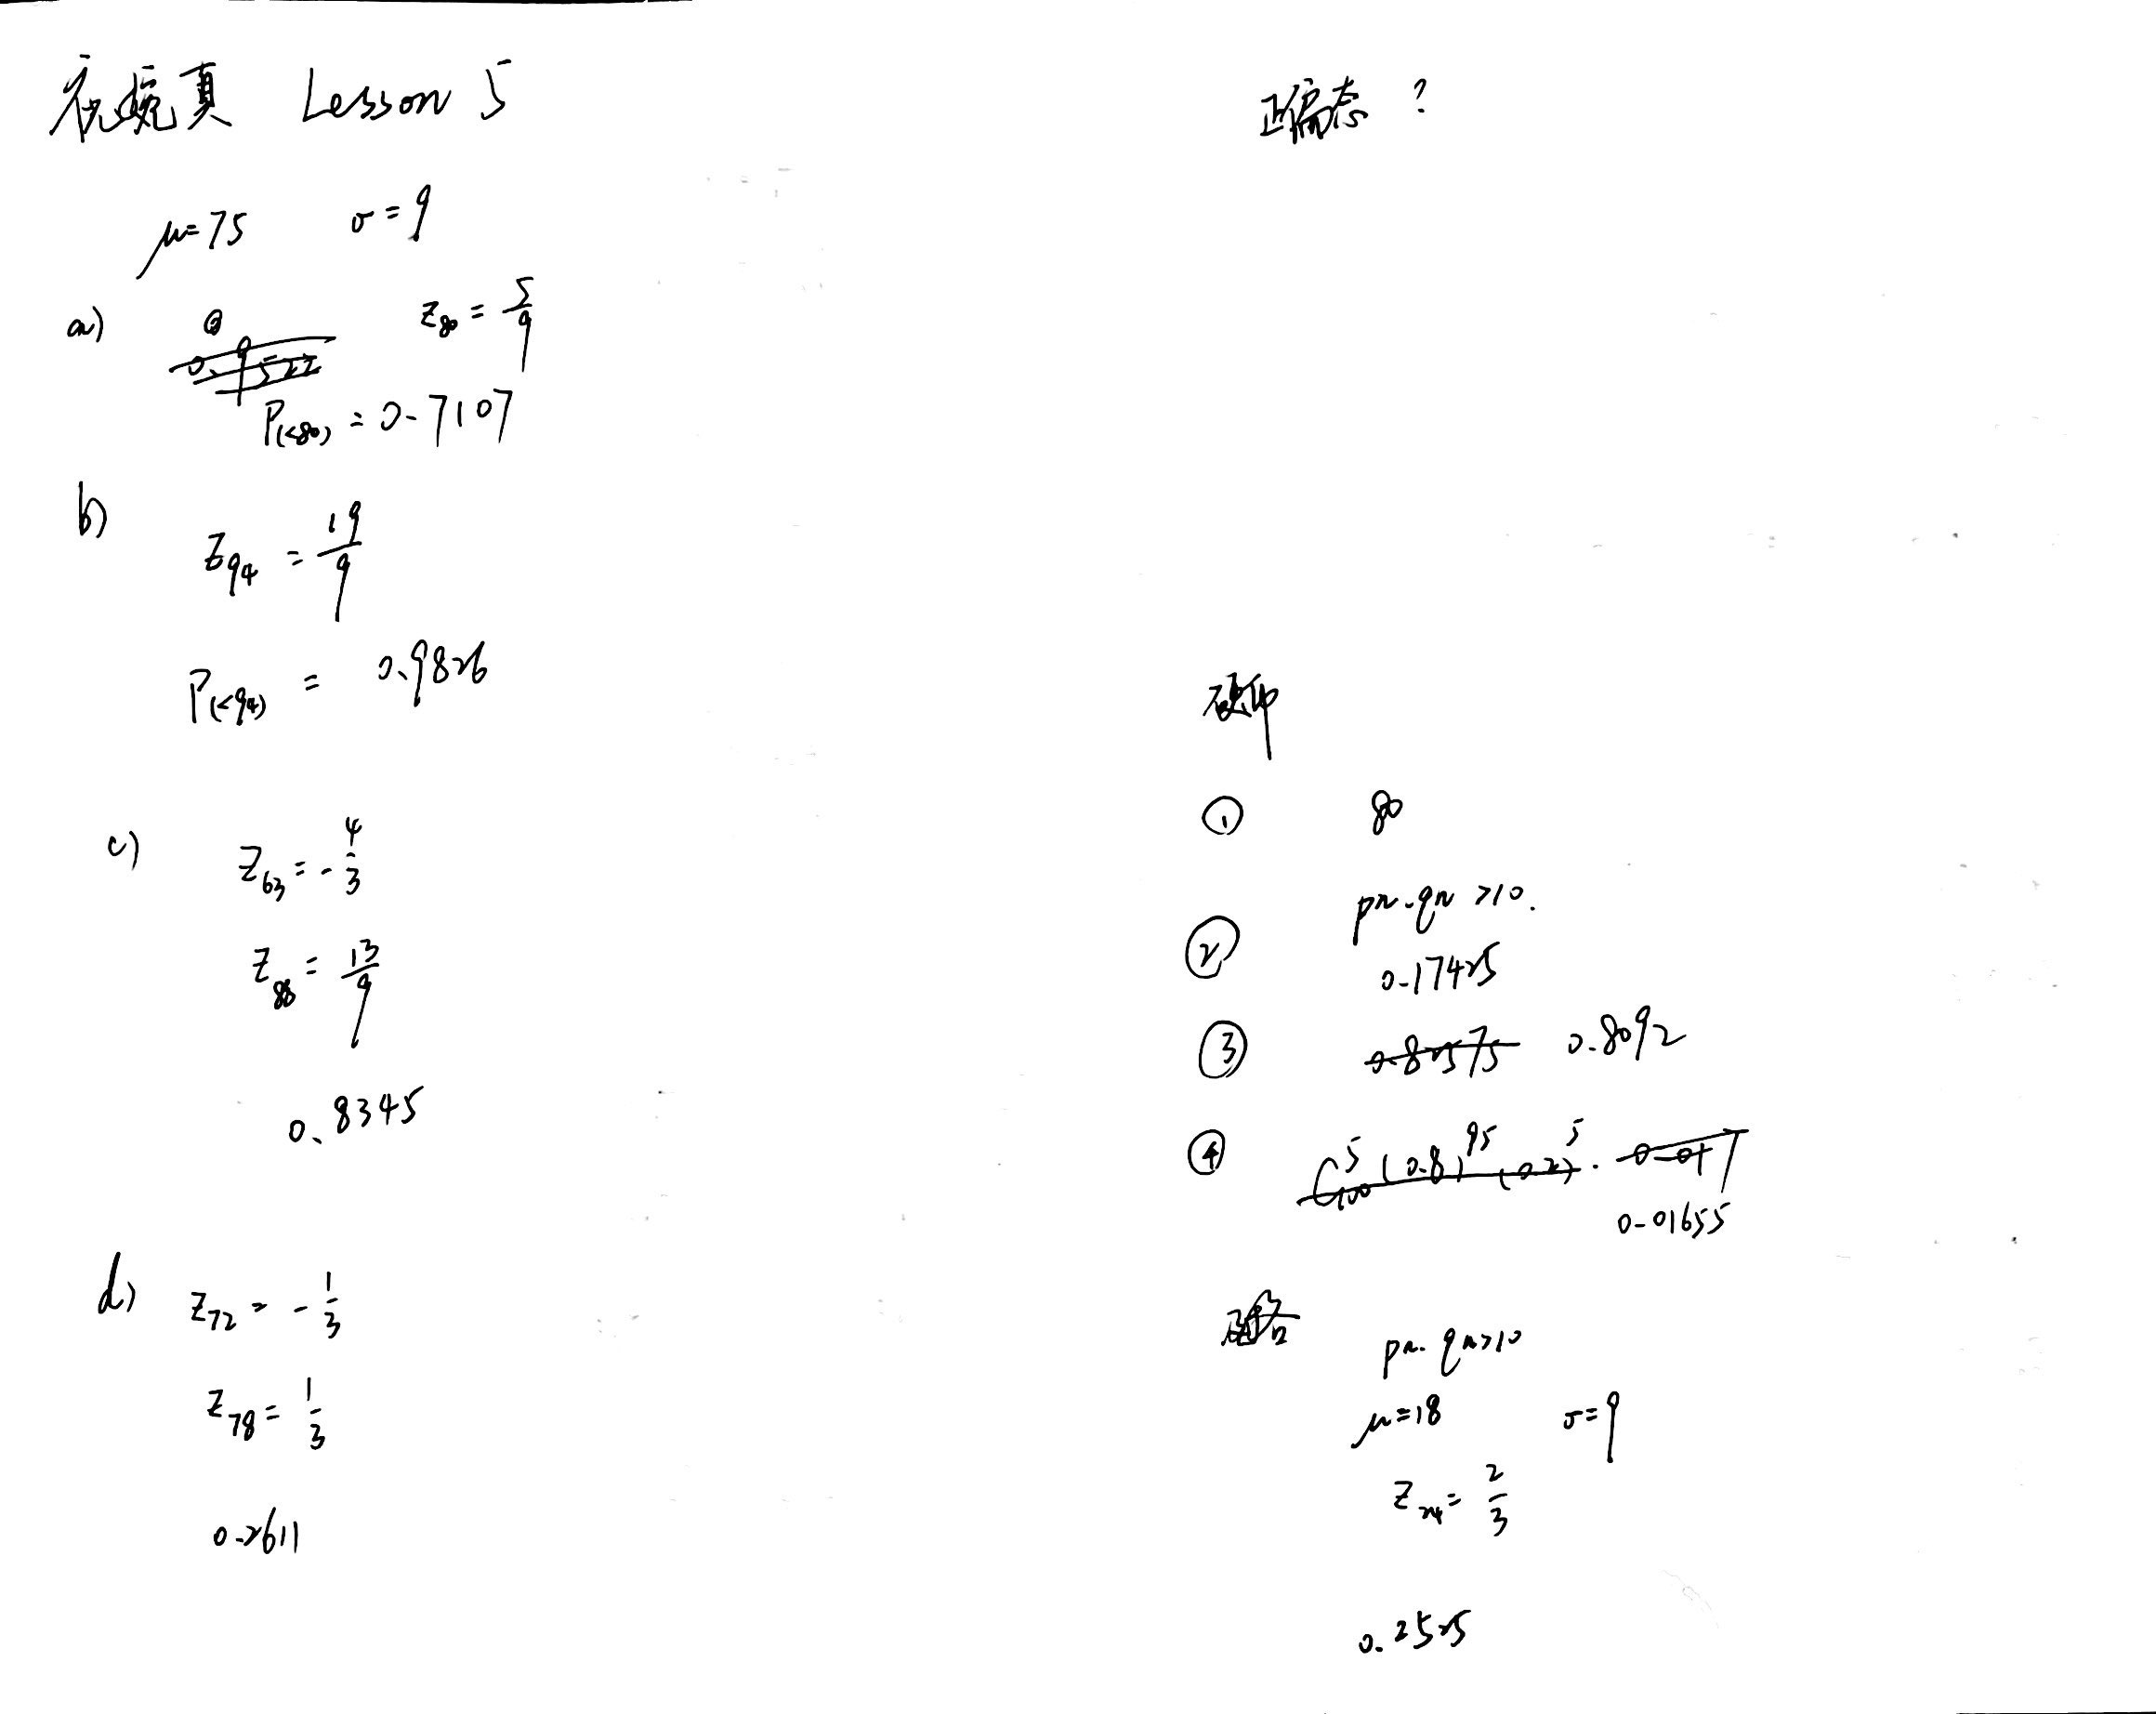 Lesson 5
μ=75 σ=9
a) z₈₀ = 5/9
P(<80) = 0.7107
b)
z₉₄ = 19/9
P(<94) = 0.9826
c) z₆₃ = -4/3
z₈₈ = 13/9
0.8345
d) z₇₂ = -1/3
z₇₈ = 1/3
0.2611
正偏态?
硬币
① 80
pn.qn >10.
② 0.17425
③ 0.82575 0.8092
④ C₁₀₀⁵ (0.8)⁹⁵ (0.2)⁵
0.01655
pn.qn>10
μ=18 σ=9
z₂₄ = 2/3
0.2525